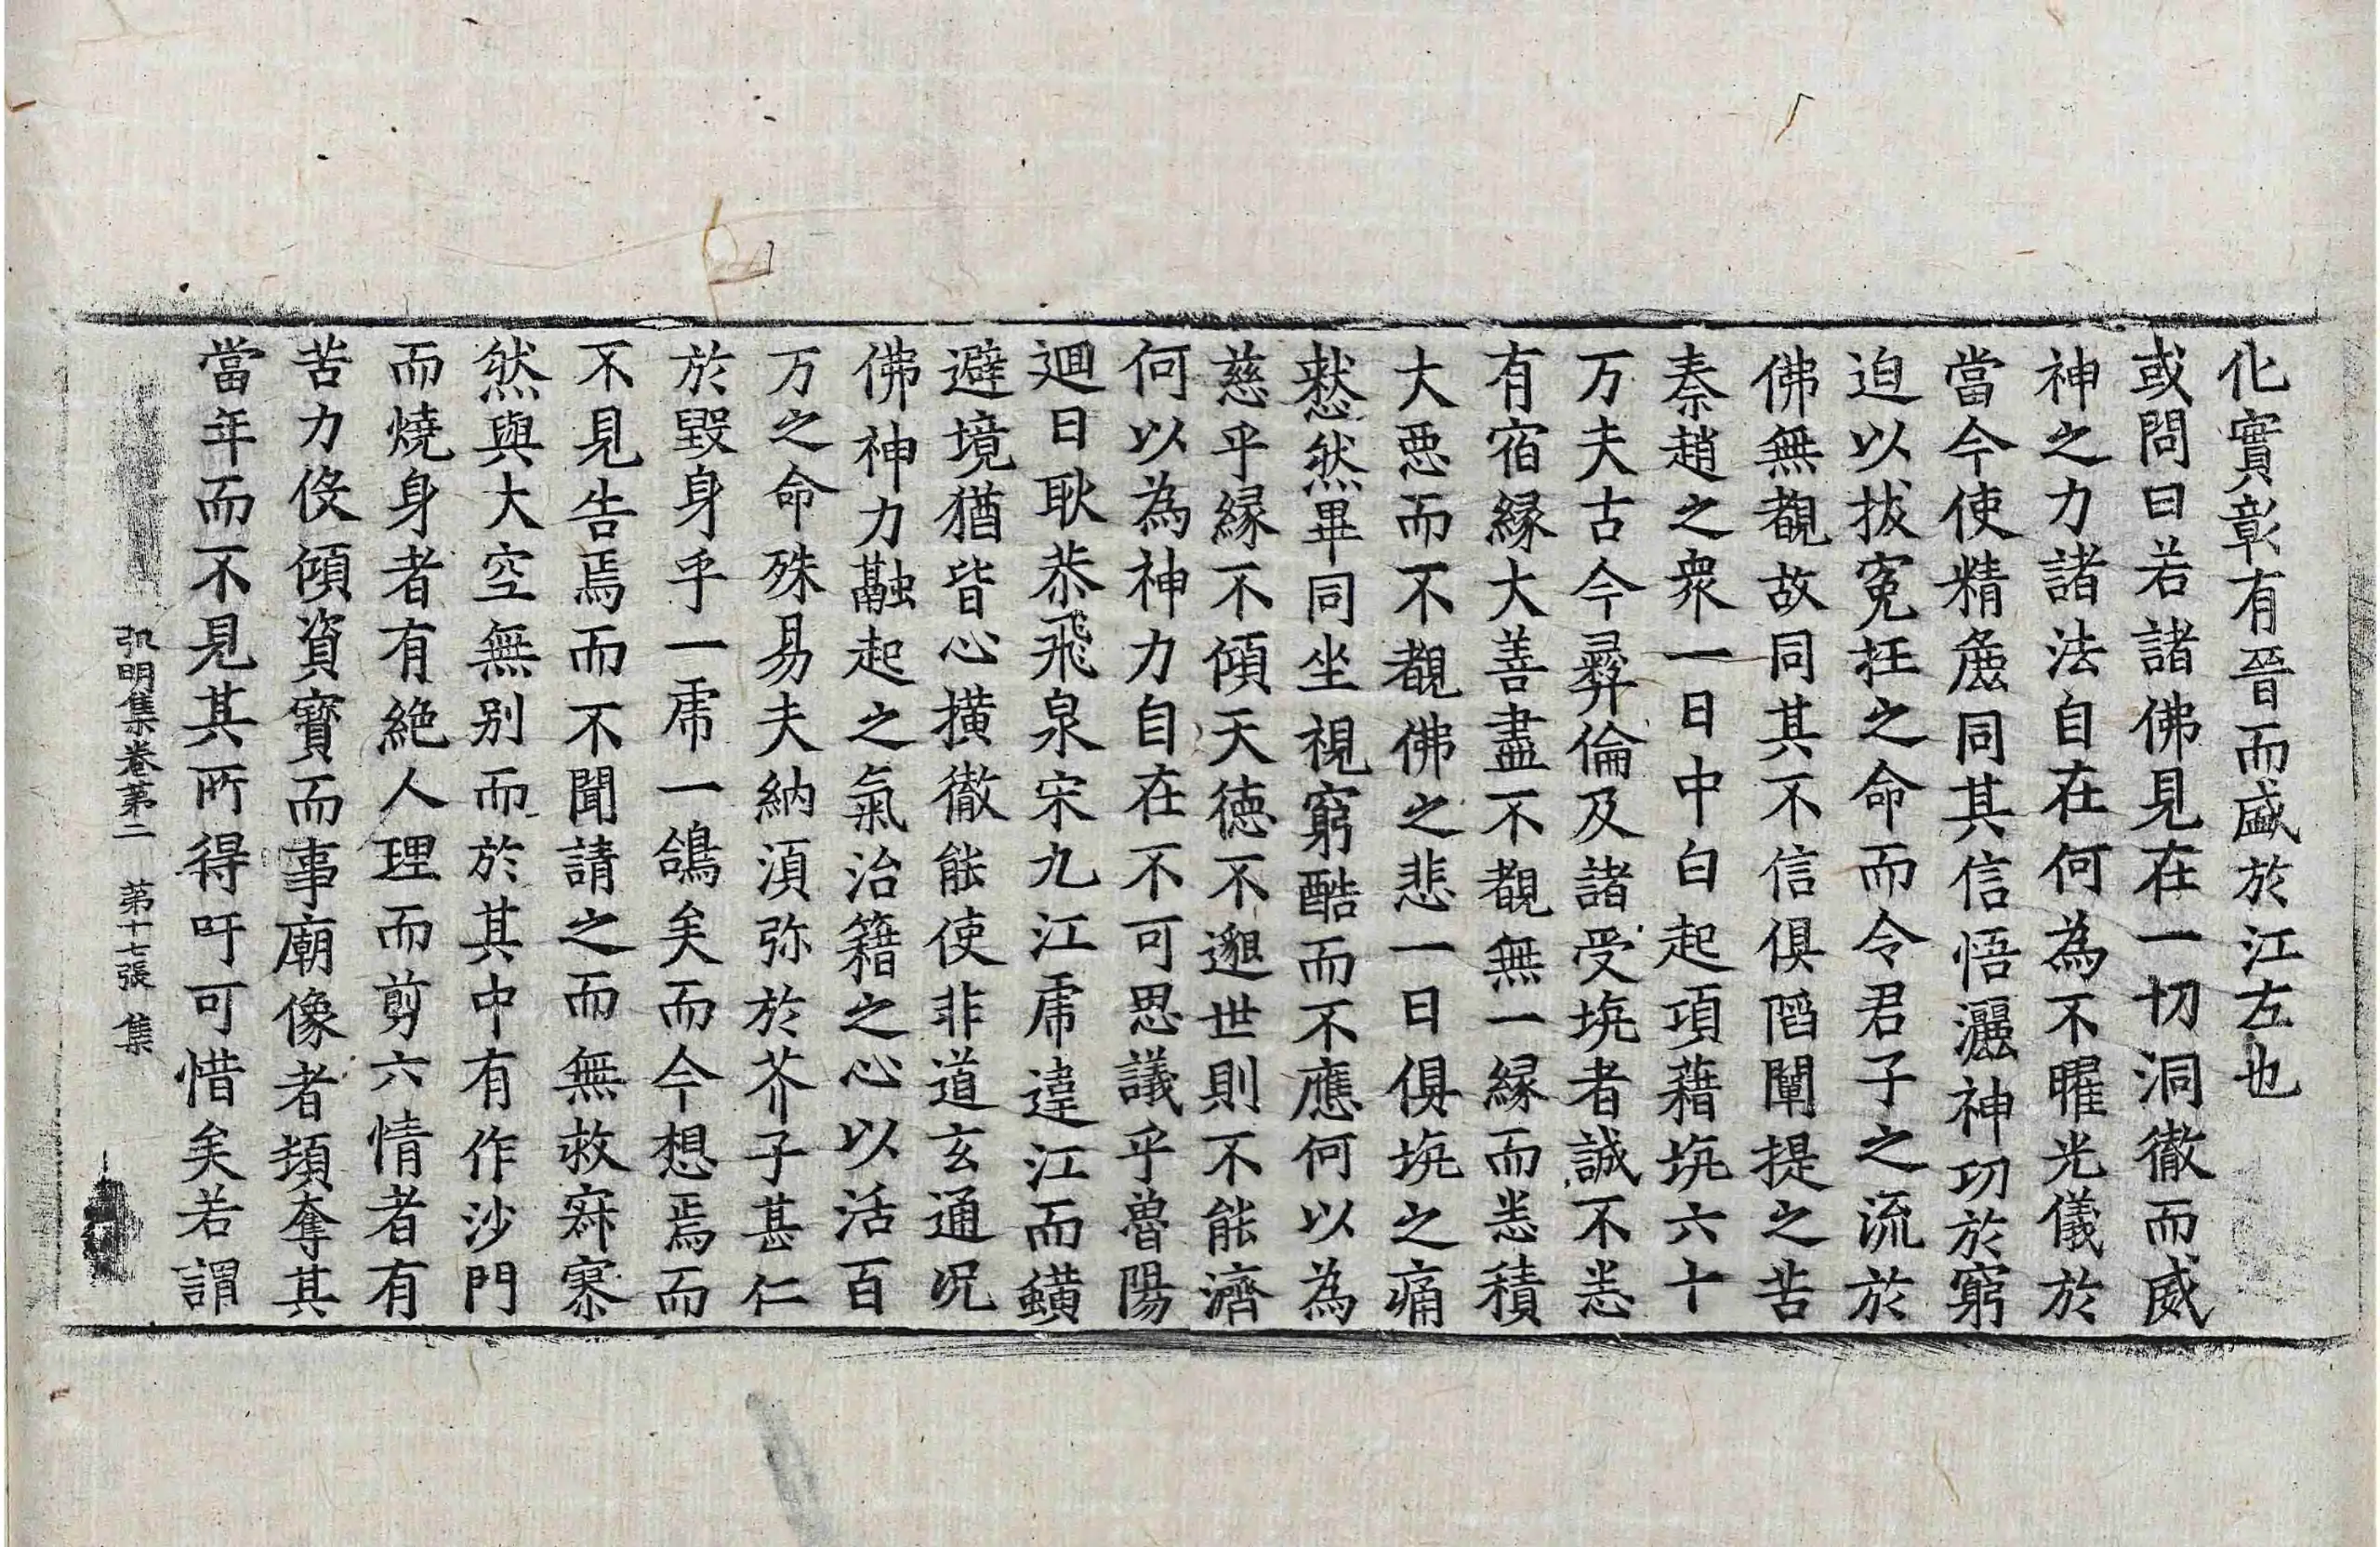 化實彰有晉而盛於江左也
或問曰若諸佛見在一切洞徹而威
神之力諸法自在何為不曜光儀於
當今使精麁同其信悟灑神功於窮
迫以拔寃抂之命而令君子之流於
佛無覩故同其不信俱陷闡提之苦
秦趙之衆一日中白起項藉坑六十
万夫古今彛倫及諸受坑者誠不悉
有宿縁大善盡不覩無一縁而悉積
大惡而不覩佛之悲一日俱坑之痛
愁然畢同坐視窮酷而不應何以為
慈乎縁不傾天德不邈世則不能濟
何以為神力自在不可思議乎魯陽
迴日耿恭飛泉宋九江虎違江而蝗
避境猶皆心横徹能使非道玄通況
佛神力融起之氣治籍之心以活百
万之命殊易夫納湏弥於芥子甚仁
於毀身乎一虎一鴿矣而今想焉而
不見告焉而不聞請之而無救寂寥
然與大空無别而於其中有作沙門
而燒身者有絶人理而剪六情者有
苦力役傾資寳而事廟像者頻奪其
當年而不見其所得吁可惜矣若謂
弘明集卷第二　第十七張　集